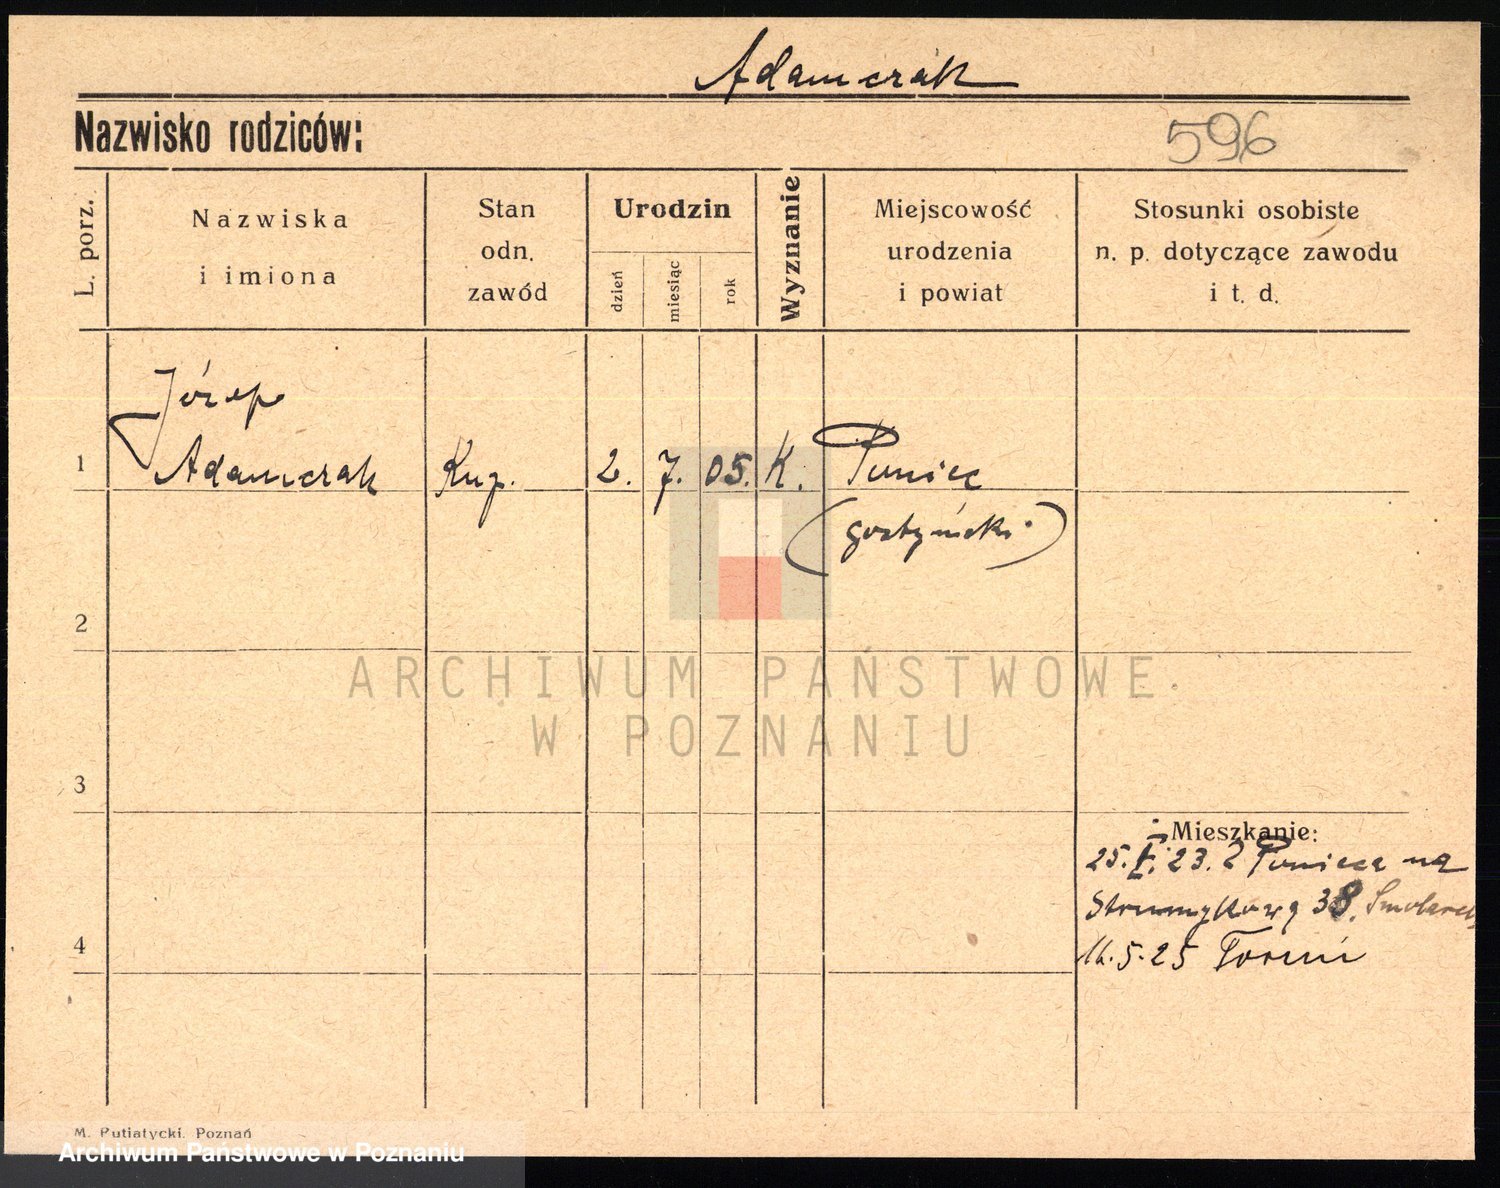 Adamczak
Nazwisko rodziców:
596
L. porz.
Nazwiska
i imiona
Stan
odn.
zawód
Urodzin
dzień
miesiąc
rok
Wyznanie
Miejscowość
urodzenia
i powiat
Stosunki osobiste
n. p. dotyczące zawodu
i t. d.
Józef
1 Adamczak Kup. 2. 7. 05. K. Puniec
(gostyński)
2
ARCHIWUM PAŃSTWOWE
W POZNANIU
3
Mieszkanie:
25. 23. z Punieca na
Strumykowa 38.
4
5.25 Toruń
M. Putiatycki. Poznań
Archiwum Państwowe w Poznaniu